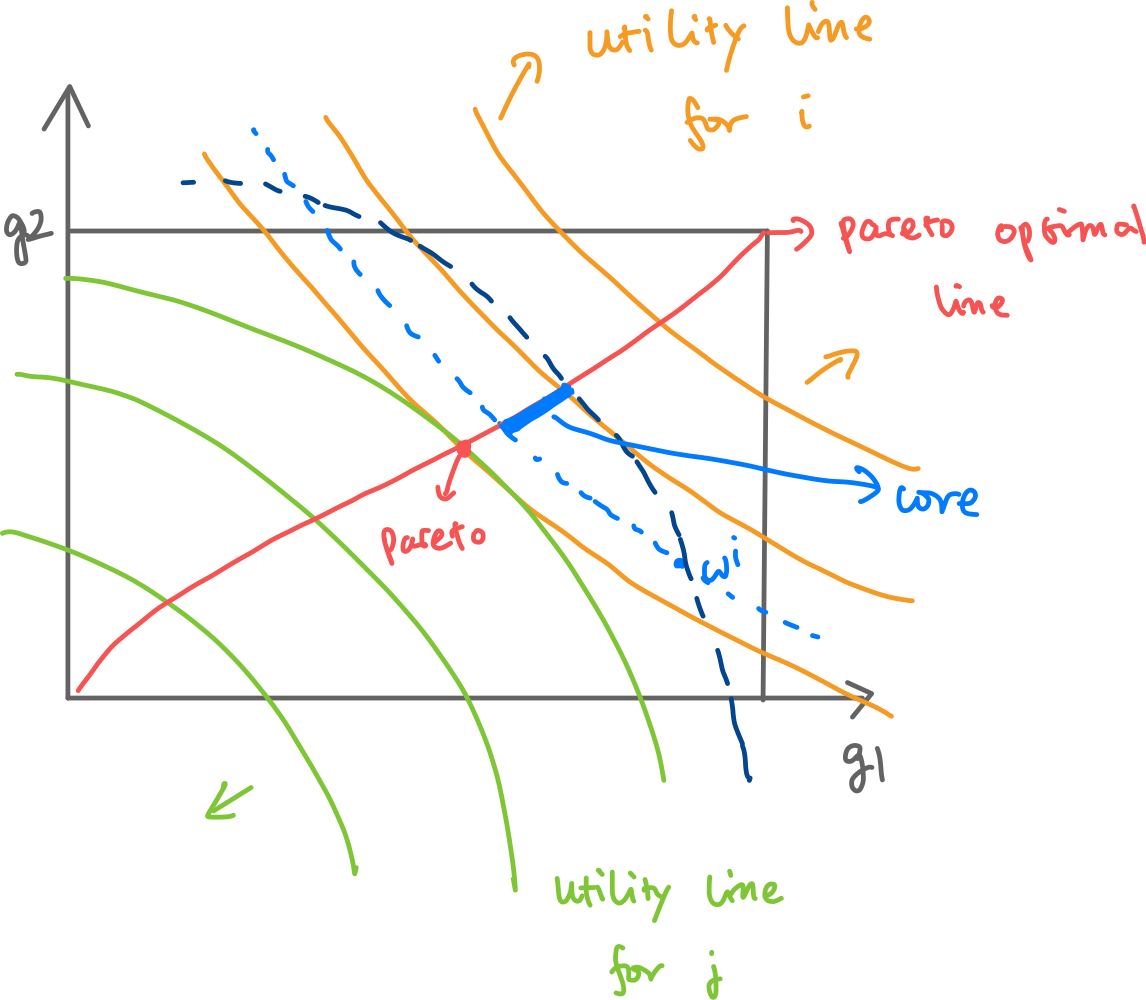 utility line
for i
g2
pareto optimal
line
core
pareto
wi
g1
utility line
for j